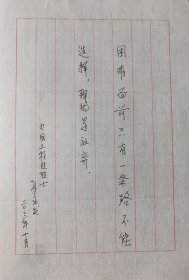 困难面前只有一条路不能
选择，那就是放弃。
中国工程院院士
二〇二〇年十月